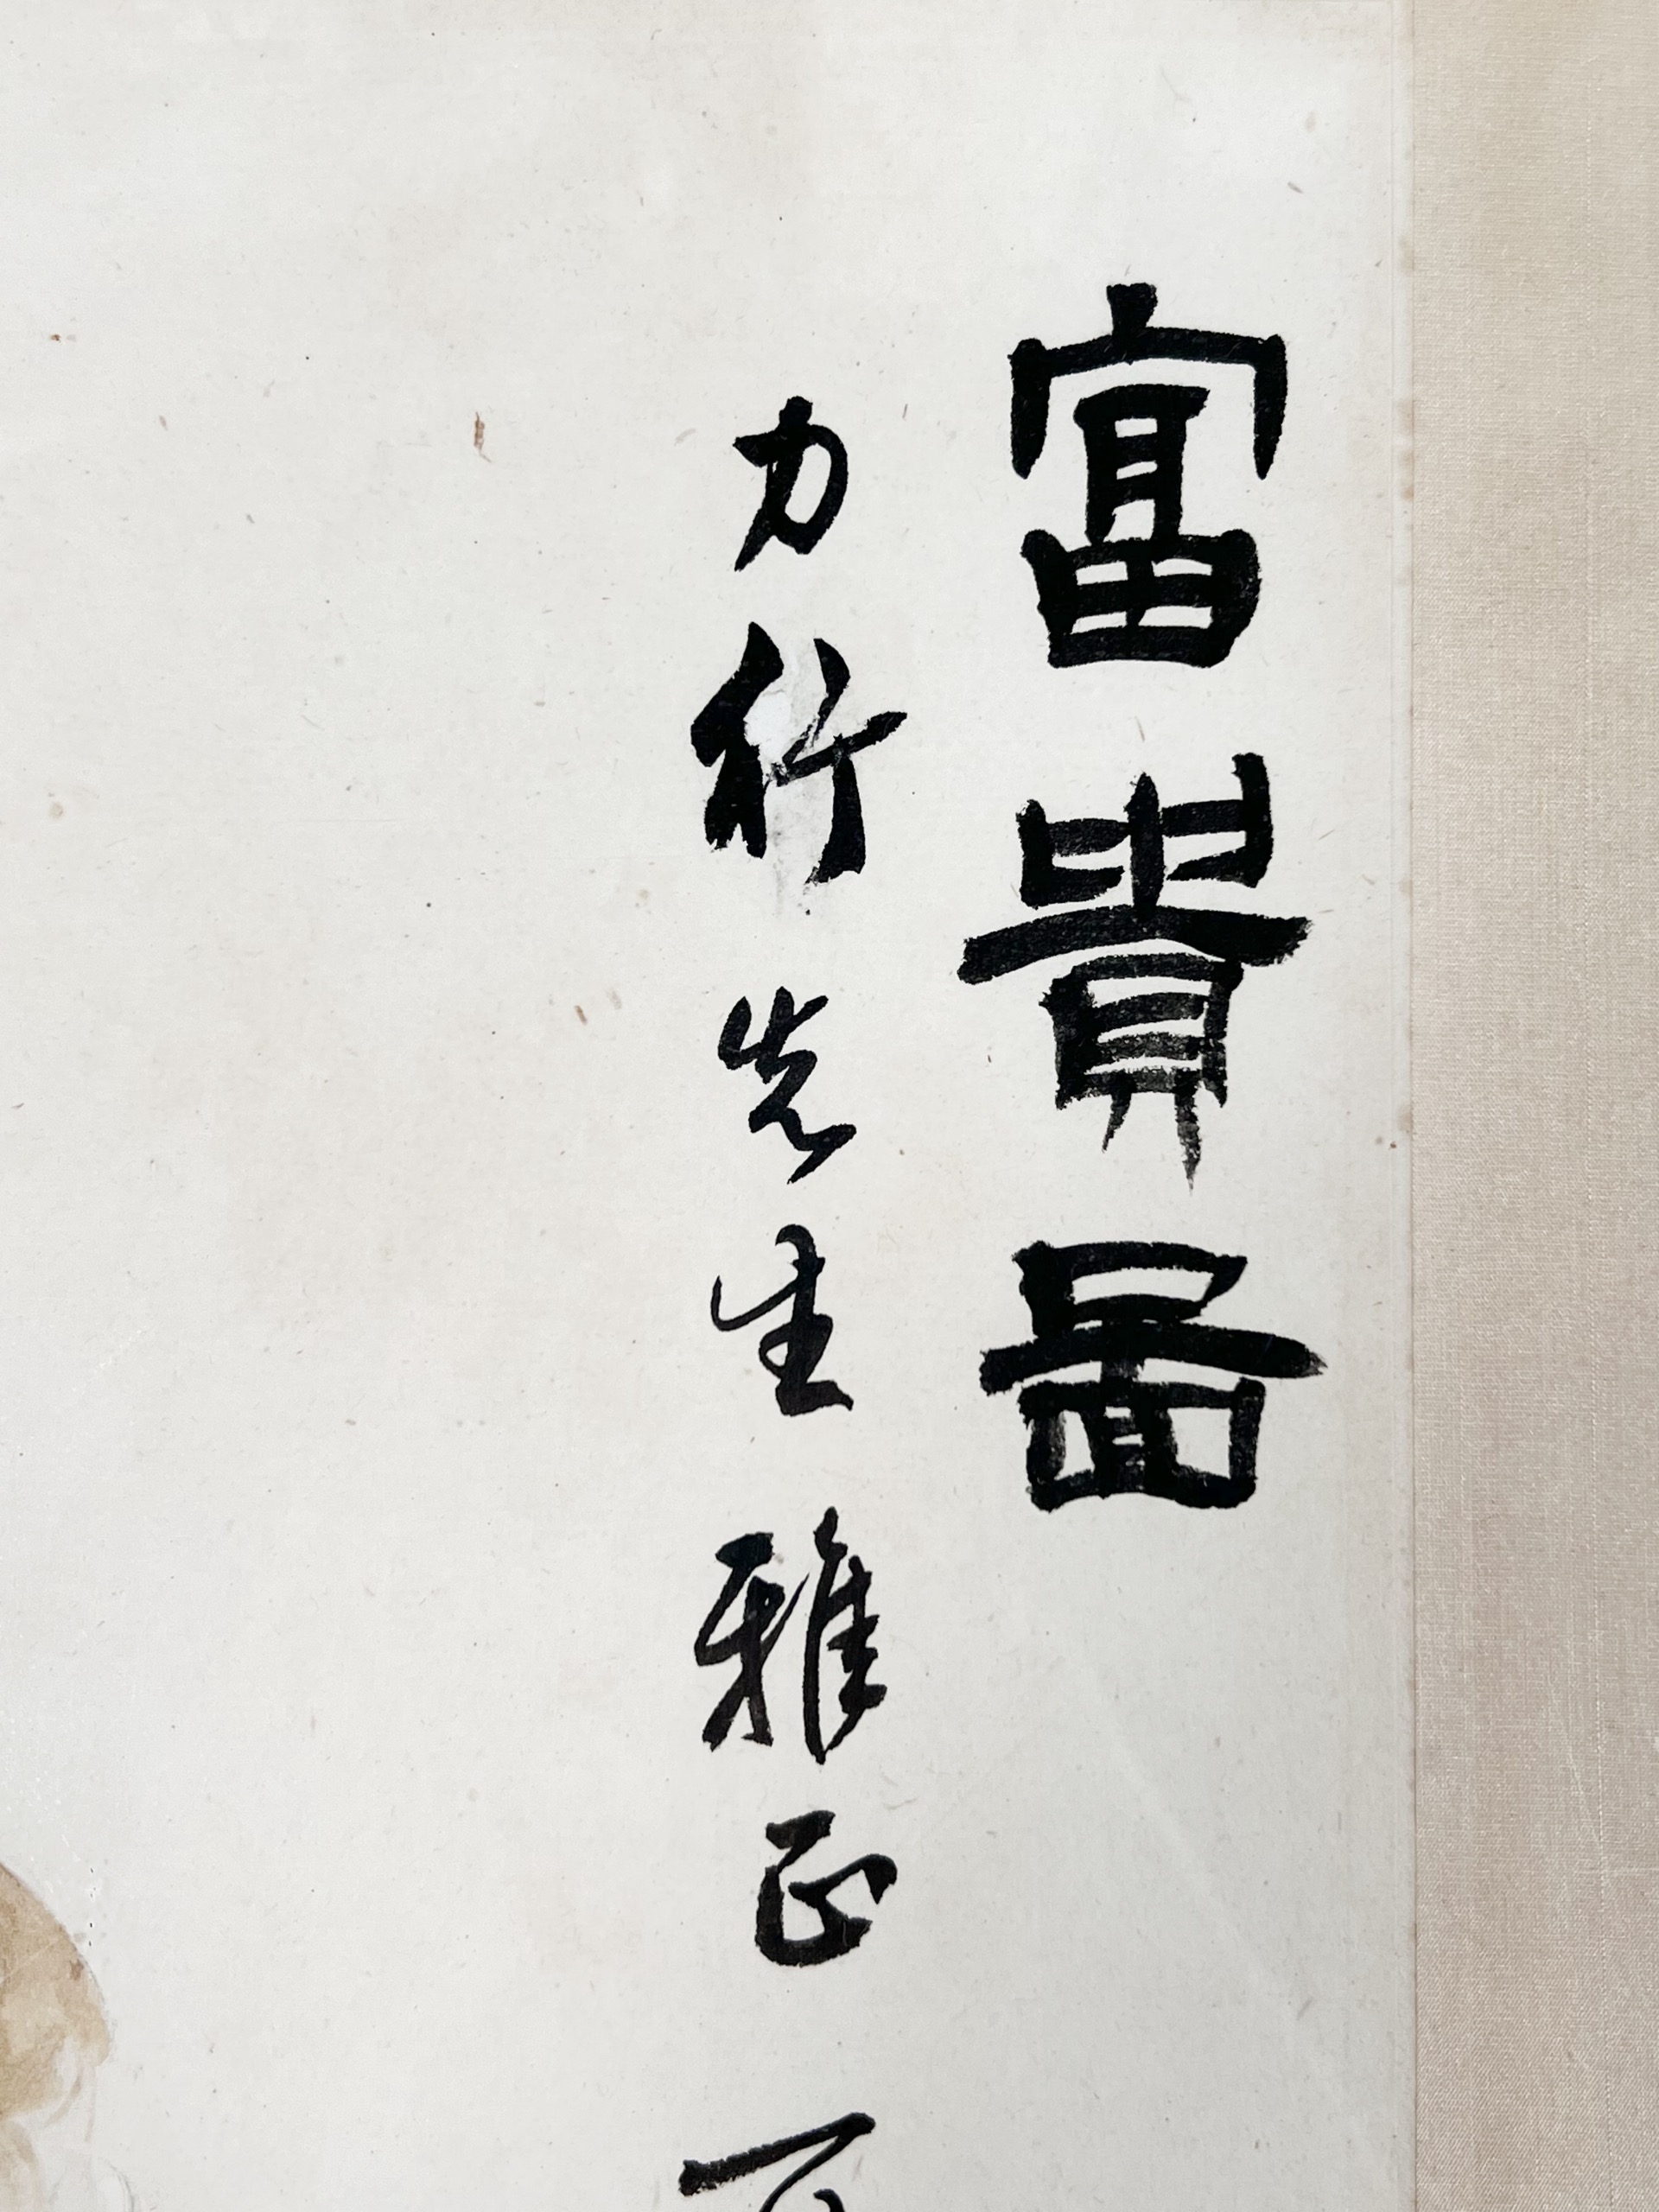 富貴圖
力行先生雅正